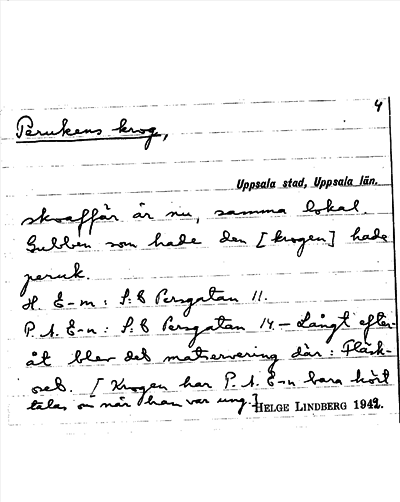 4
Perukens krog,
Uppsala stad, Uppsala län.
skoaffär är nu, samma lokal.
Gubben som hade den [krogen] hade
peruk.
H. E-m: S:t Persgatan 11.
P. A. E-n: S:t Persgatan 14. - Långt efter-
åt blev det matservering där: Fläsk-
oset. [Krogen har P. A. E-n bara hört
talas om när han var ung.] HELGE LINDBERG 1942.